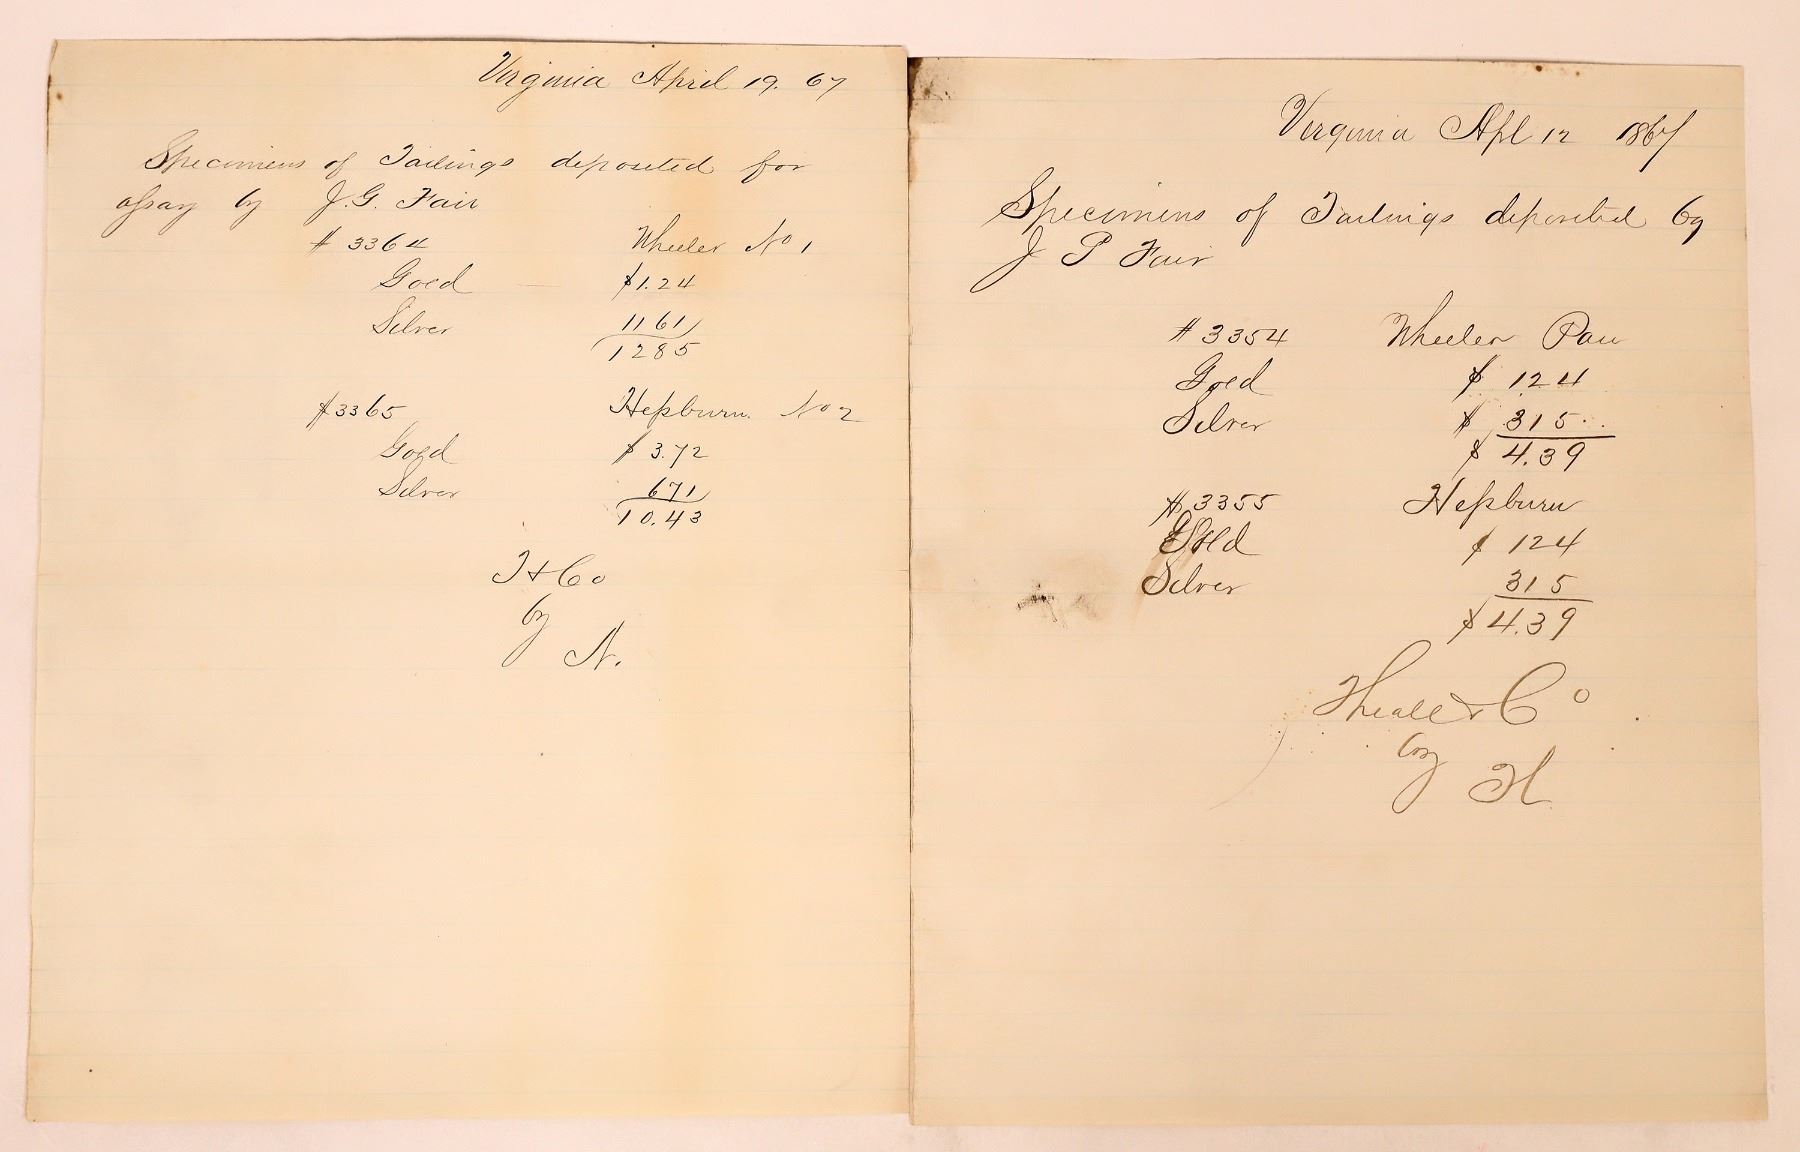 Virginia April 19. 67
Specimens of Tailings deposited for
assay by J.G. Fair
# 3364 Wheeler No 1
Gold $1.24
Silver 1161
1285
#3365 Hepburn No 2
Gold $ 3.72
Silver 671
10.43
T & Co
by
N.
Virginia Apl 12 1867
Specimens of Tailings deposited by
J P Fair
# 3354 Wheeler Pan
Gold $ 124
Silver $ 315
$ 4.39
# 3355 Hepburn
Gold $ 124
Silver 315
$ 4.39
Theall & Co
by
H